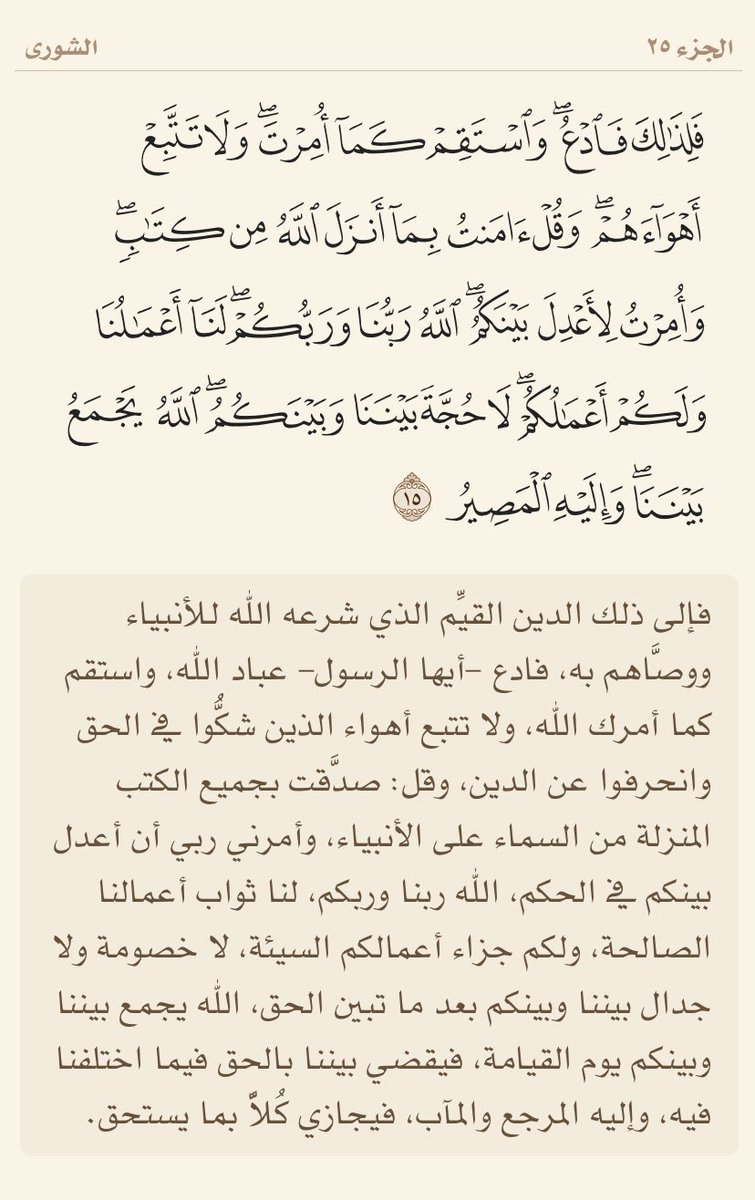 الجزء ٢٥
الشورى
فَلِذَٰلِكَ فَٱدۡعُۖ وَٱسۡتَقِمۡ كَمَآ أُمِرۡتَۖ وَلَا تَتَّبِعۡ
أَهۡوَآءَهُمۡۖ وَقُلۡ ءَامَنتُ بِمَآ أَنزَلَ ٱللَّهُ مِن كِتَٰبٖۖ
وَأُمِرۡتُ لِأَعۡدِلَ بَيۡنَكُمُۖ ٱللَّهُ رَبُّنَا وَرَبُّكُمۡۖ لَنَآ أَعۡمَٰلُنَا
وَلَكُمۡ أَعۡمَٰلُكُمۡۖ لَا حُجَّةَ بَيۡنَنَا وَبَيۡنَكُمُۖ ٱللَّهُ يَجۡمَعُ
بَيۡنَنَاۖ وَإِلَيۡهِ ٱلۡمَصِيرُ ١٥
فإلى ذلك الدين القيِّم الذي شرعه الله للأنبياء
ووصَّاهم به، فادع –أيها الرسول– عباد الله، واستقم
كما أمرك الله، ولا تتبع أهواء الذين شكُّوا في الحق
وانحرفوا عن الدين، وقل: صدَّقت بجميع الكتب
المنزلة من السماء على الأنبياء، وأمرني ربي أن أعدل
بينكم في الحكم، الله ربنا وربكم، لنا ثواب أعمالنا
الصالحة، ولكم جزاء أعمالكم السيئة، لا خصومة ولا
جدال بيننا وبينكم بعد ما تبين الحق، الله يجمع بيننا
وبينكم يوم القيامة، فيقضي بيننا بالحق فيما اختلفنا
فيه، وإليه المرجع والمآب، فيجازي كُلاًّ بما يستحق.